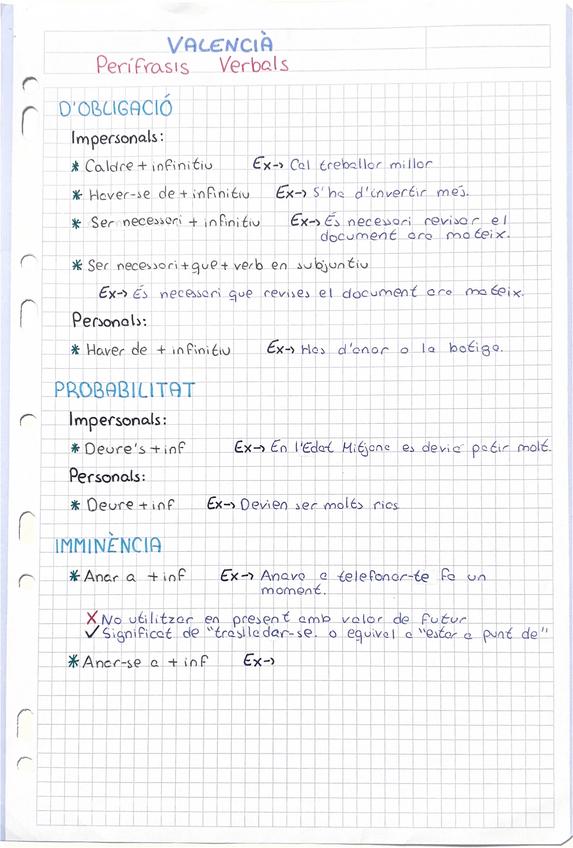 VALENCIÀ
Perífrasis Verbals
D'OBLIGACIÓ
Impersonals:
* Caldre + infinitiu Ex→ Cal treballar millor
* Haver-se de + infinitiu Ex→ S'ha d'invertir més.
* Ser necessari + infinitiu Ex→ És necessari revisar el
document ara mateix.
* Ser necessari + que + verb en subjuntiu
Ex→ És necessari que revises el document ara mateix.
Personals:
* Haver de + infinitiu Ex→ Has d'anar a la botiga.
PROBABILITAT
Impersonals:
* Deure's + inf Ex→ En l'Edat Mitjana es devia patir molt.
Personals:
* Deure + inf Ex→ Devien ser molts rics
IMMINÈNCIA
* Anar a + inf Ex→ Anava a telefonar-te fa un
moment.
X No utilitzar en present amb valor de futur
✓ Significat de "traslladar-se. o equival a "estar a punt de"
* Anar-se a + inf Ex→